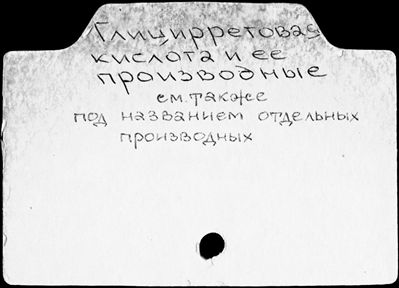 Глицирретовая
кислота и ее
производные
см. также
под названием отдельных
производных